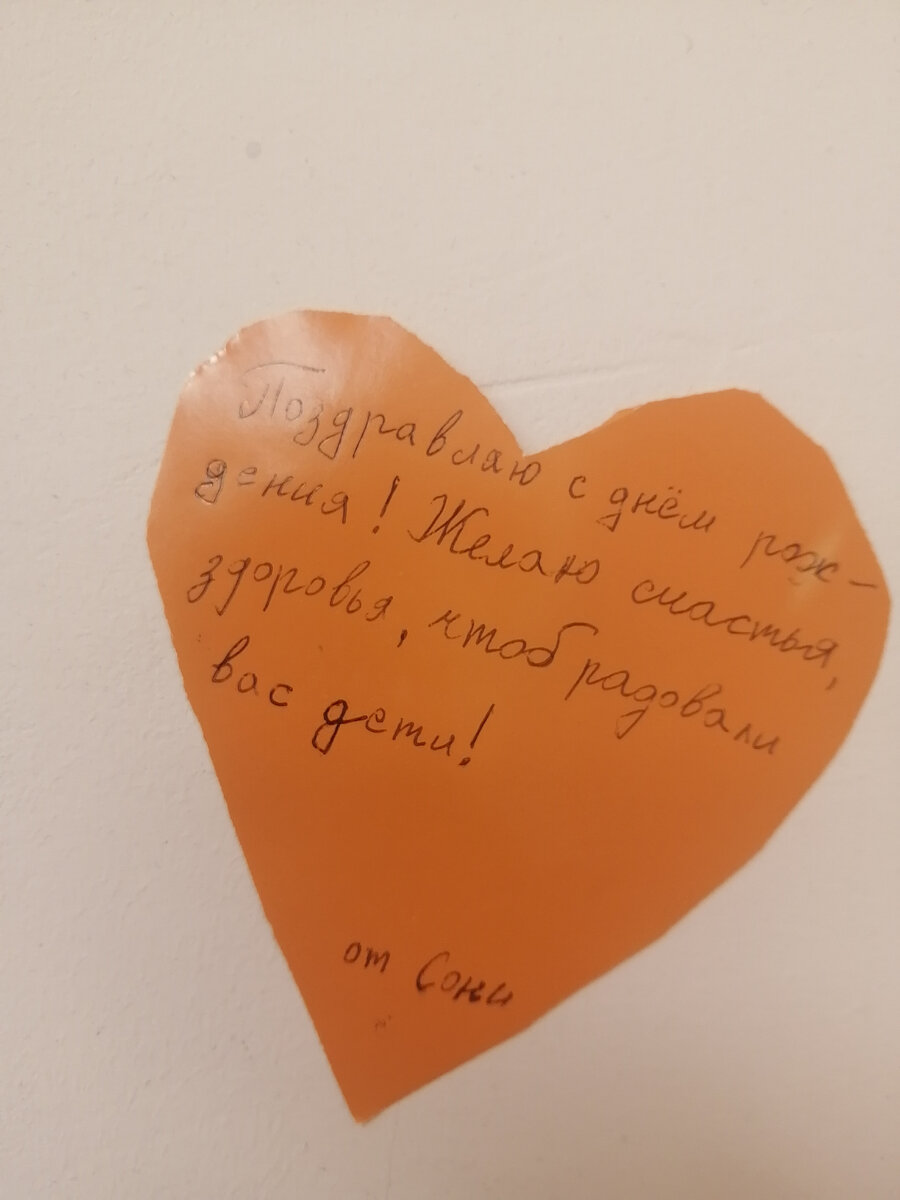 Поздравляю с днём рож-
дения! Желаю счастья,
здоровья, чтоб радовали
вас дети!
от Сони